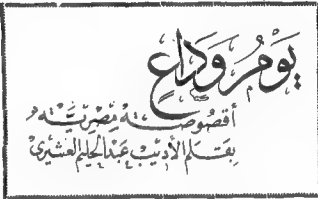 يَوْمُ وَدَاعٍ
أقصُوصَة مِصْرِيَّة
بِقَلَم الأديبْ عَبْد الحليم العشيرى